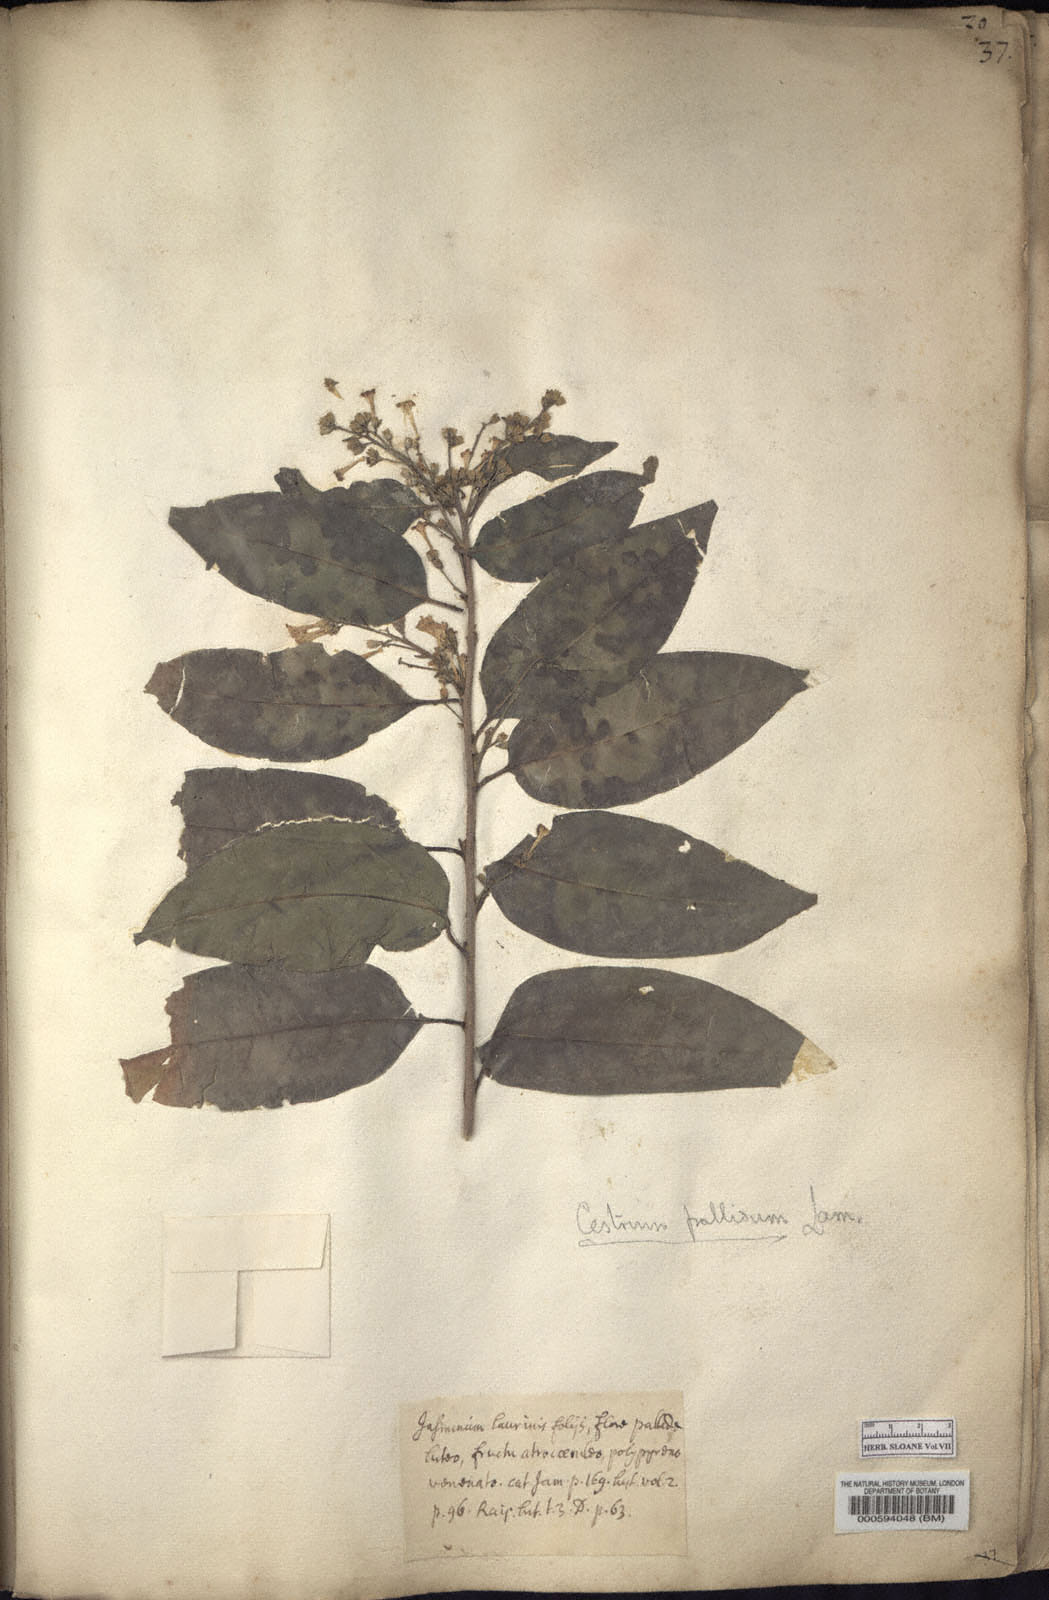 30
37.
Cestrum pallidum Lam.
Jasminum laurinis folijs, flore pallide
luteo, fructu atrocœruleo, polypyreno
venenato. cat. Jam. p. 169. hist. vol. 2.
p. 96. Raij. hist. t. 3. D. p. 63.
HERB. SLOANE Vol VII
THE NATURAL HISTORY MUSEUM, LONDON
DEPARTMENT OF BOTANY
000594048 (BM)